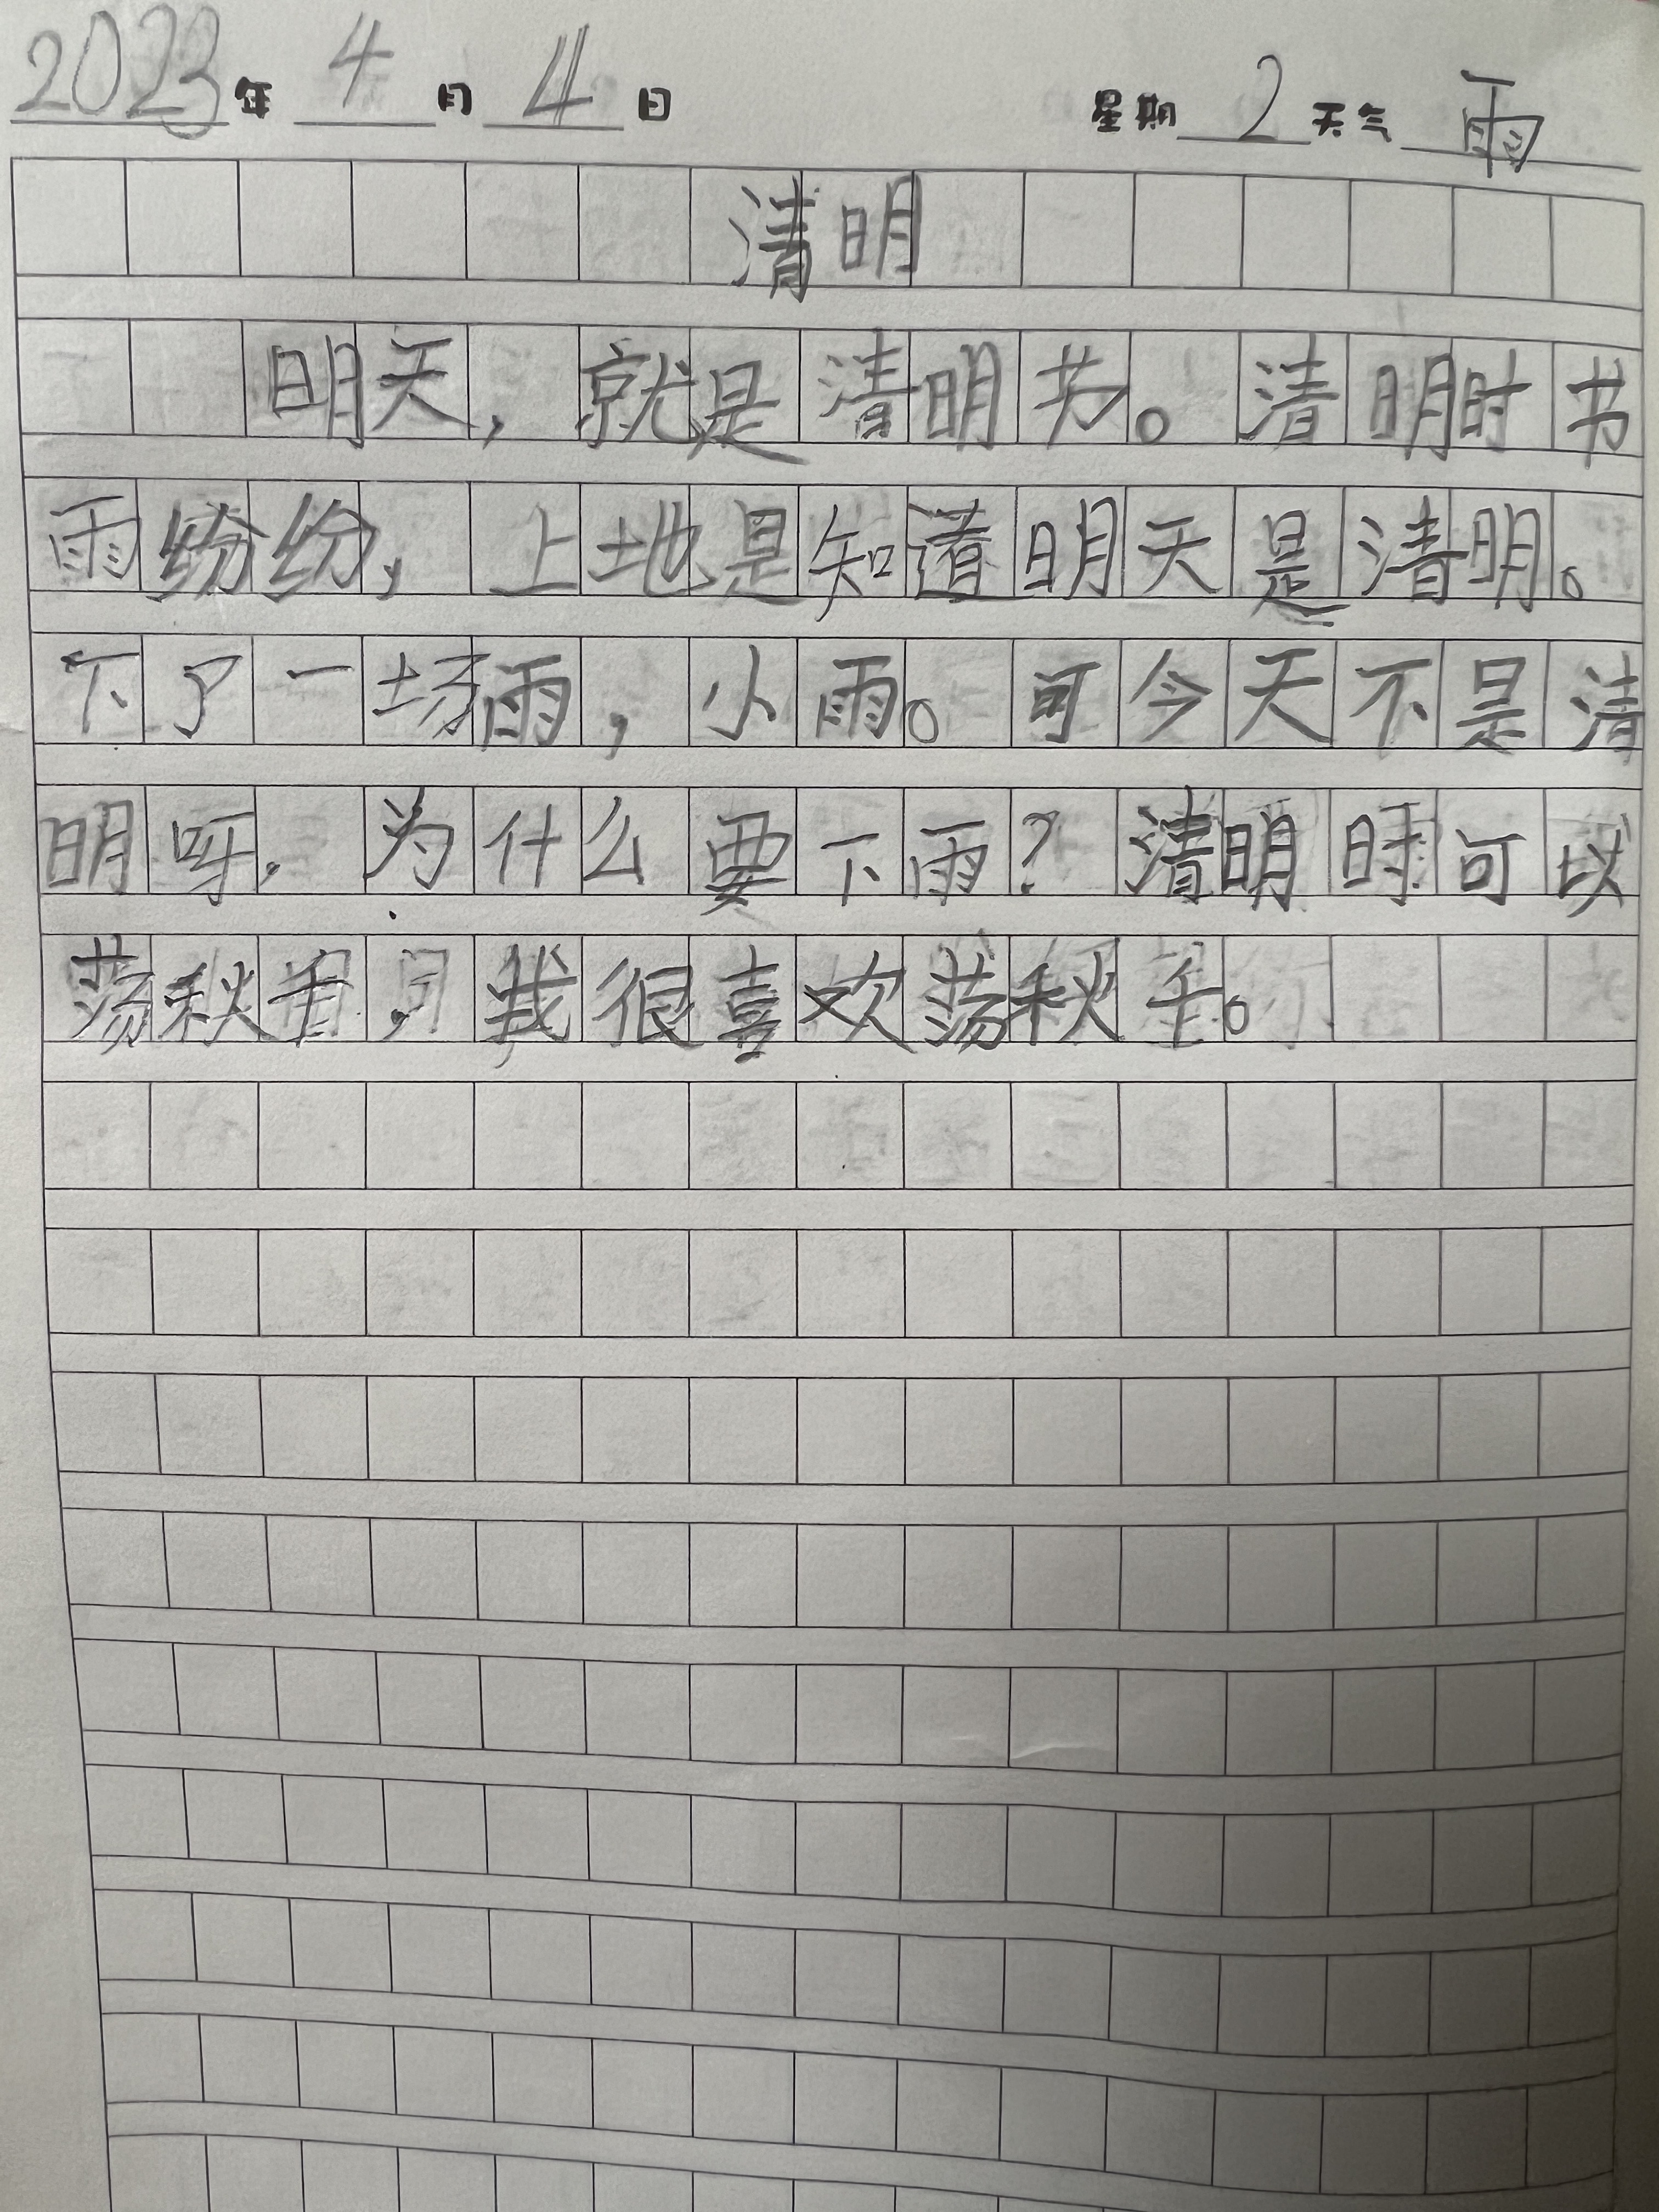 2023年4月4日 星期2天气雨
清明
明天，就是清明节。清明时书
雨纷纷，上地是知道明天是清明。
下了一场雨，小雨。可今天不是清
明呀，为什么要下雨？清明时可以
荡秋千，我很喜欢荡秋千。